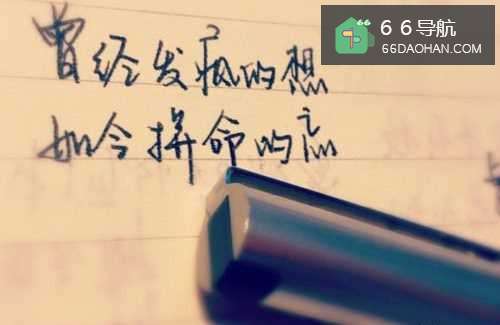 66导航
66DAOHAN.COM
曾经发疯的想
如今拼命的忘